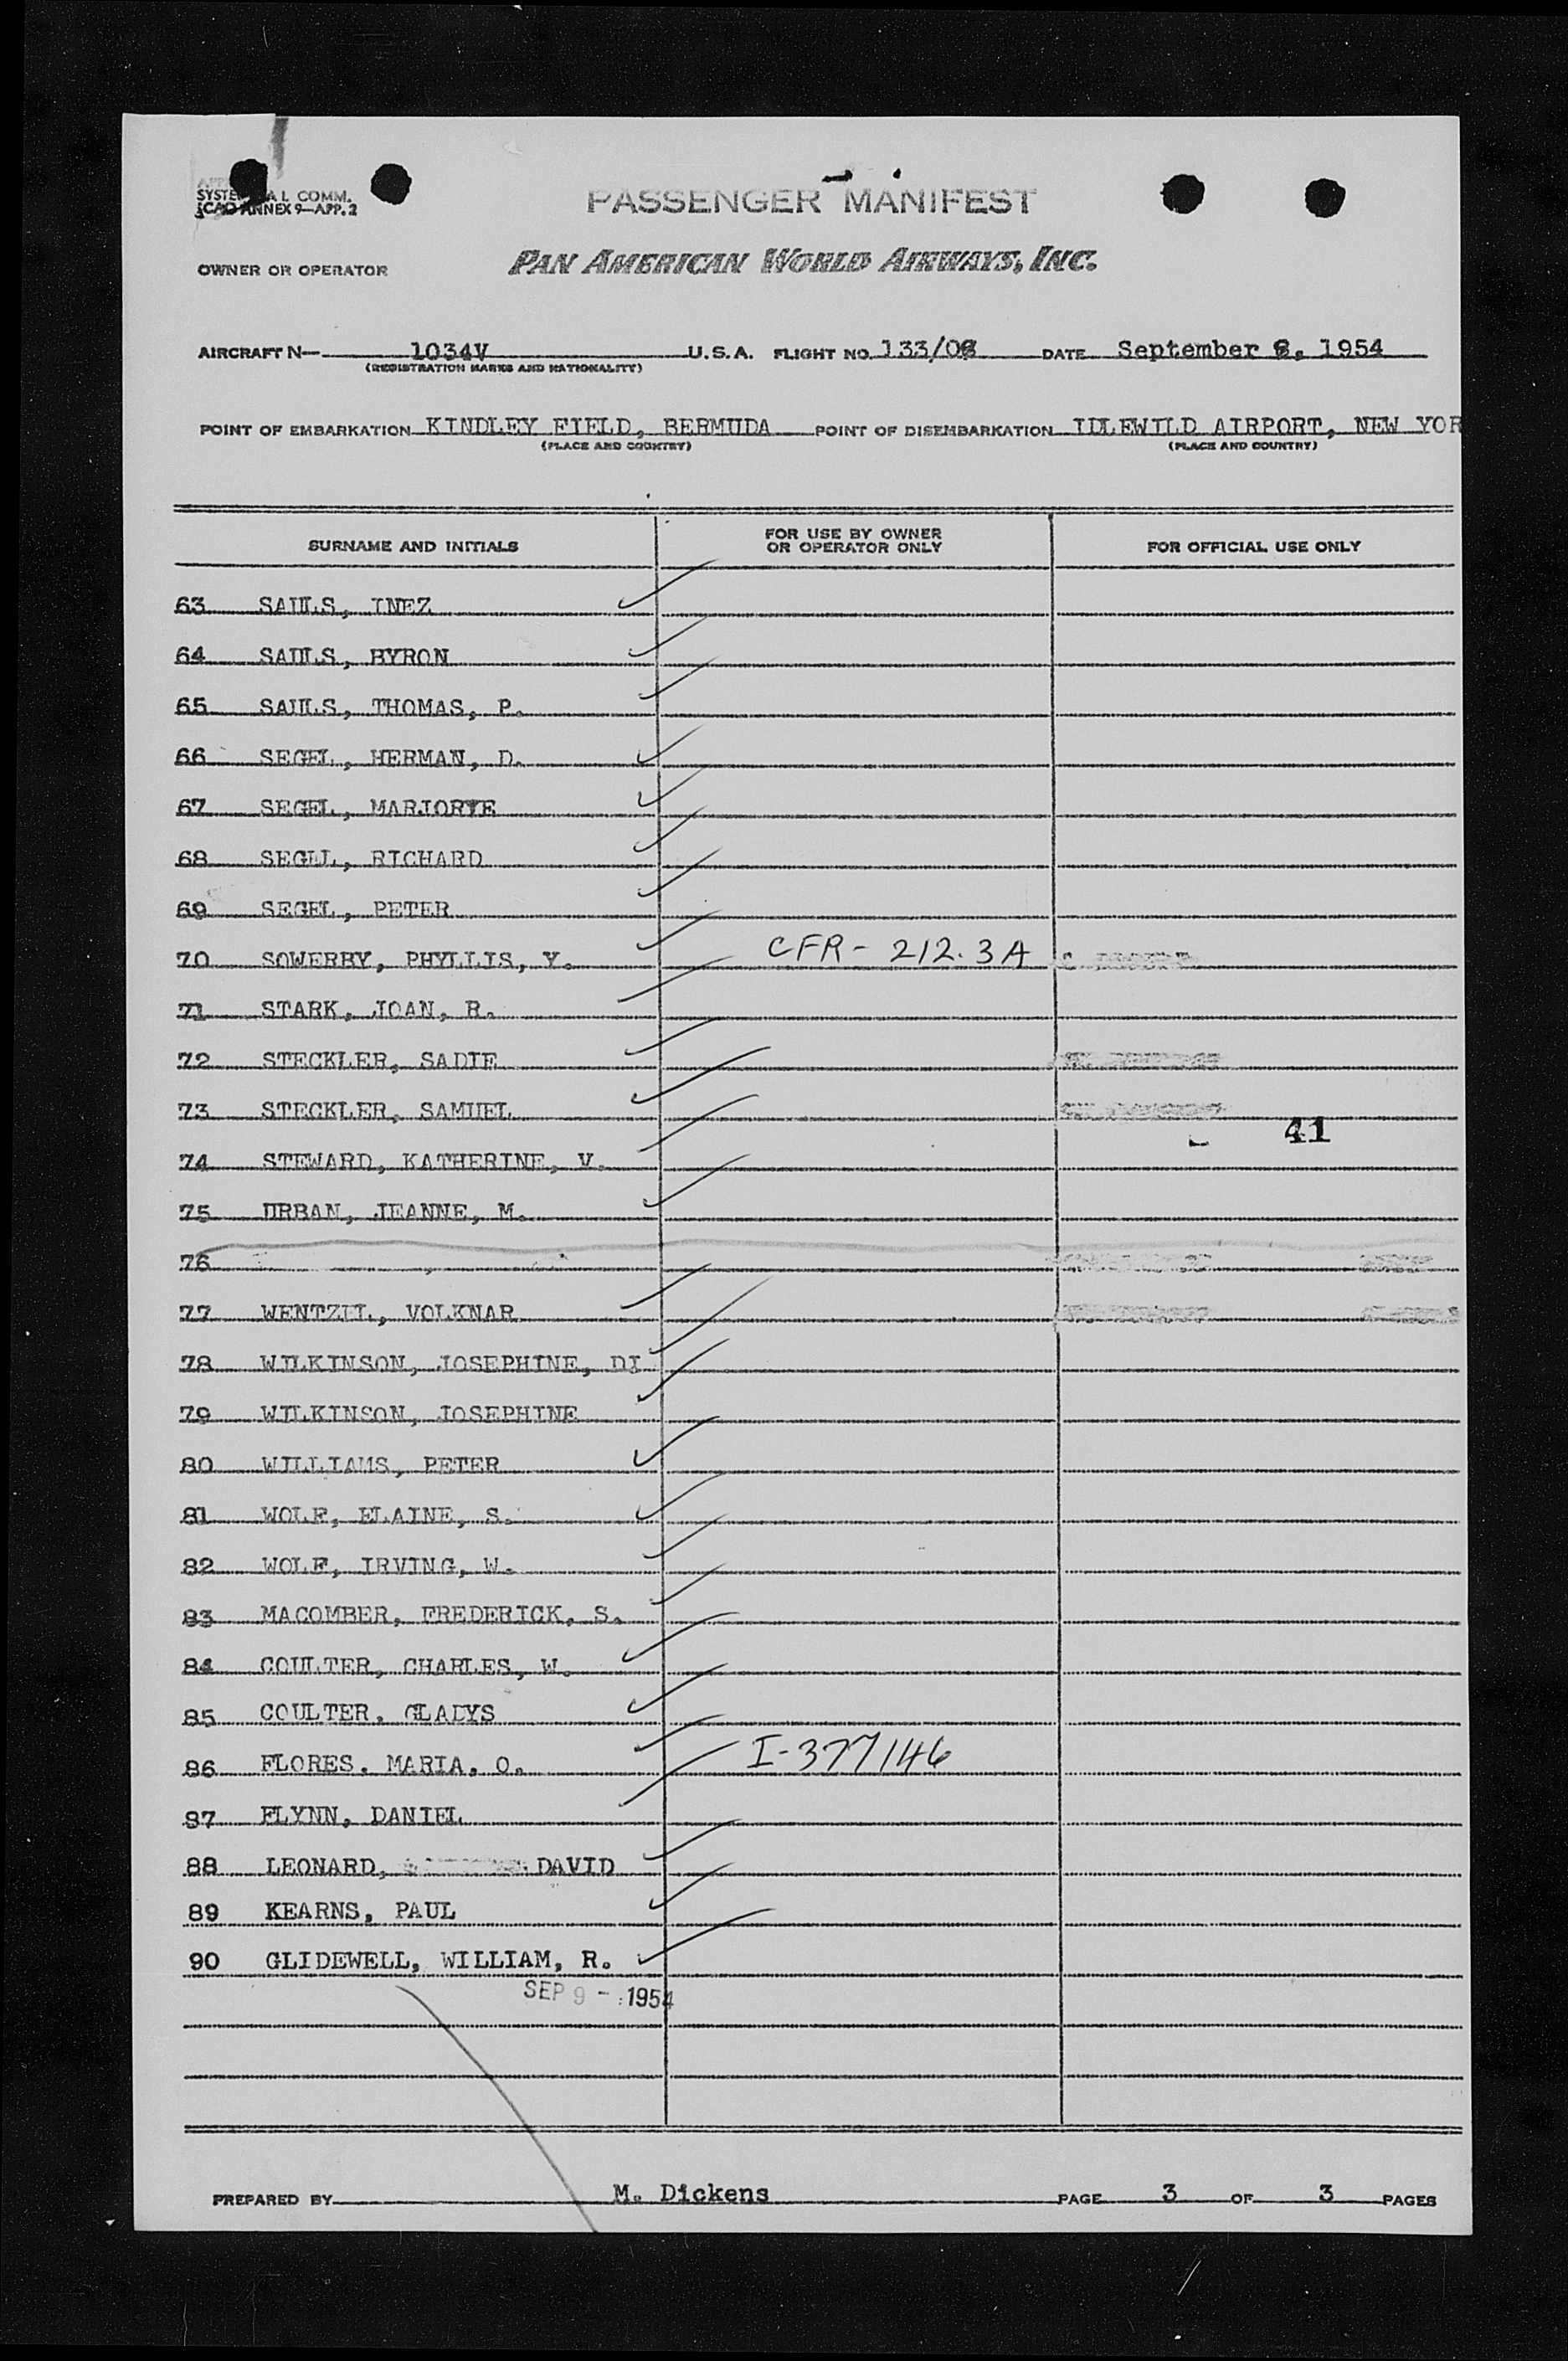 SYSTE AL COMM.
ICAO ANNEX 9—APP. 2
PASSENGER MANIFEST
OWNER OR OPERATOR PAN AMERICAN WORLD AIRWAYS, INC.
AIRCRAFT N— 1034V U.S.A. FLIGHT NO. 133/08 DATE September 8, 1954
(REGISTRATION MARKS AND NATIONALITY)
POINT OF EMBARKATION KINDLEY FIELD, BERMUDA POINT OF DISEMBARKATION IDLEWILD AIRPORT, NEW YOR
(PLACE AND COUNTRY) (PLACE AND COUNTRY)
SURNAME AND INITIALS FOR USE BY OWNER OR OPERATOR ONLY FOR OFFICIAL USE ONLY
63 SAULS, INEZ
64 SAULS, BYRON
65 SAULS, THOMAS, P.
66 SEGEL, HERMAN, D.
67 SEGEL, MARJORYE
68 SEGEL, RICHARD
69 SEGEL, PETER
70 SOWERBY, PHYLLIS, Y. CFR - 212.3A
71 STARK, JOAN, R.
72 STECKLER, SADIE
73 STECKLER, SAMUEL
41
74 STEWARD, KATHERINE, V.
75 URBAN, JEANNE, M.
76
77 WENTZIL, VOLKNAR
78 WILKINSON, JOSEPHINE, DI
79 WILKINSON, JOSEPHINE
80 WILLIAMS, PETER
81 WOLF, ELAINE, S.
82 WOLF, IRVING, W.
83 MACOMBER, FREDERICK, S.
84 COULTER, CHARLES, W.
85 COULTER, GLADYS
86 FLORES, MARIA, O. I-377146
87 FLYNN, DANIEL
88 LEONARD, DAVID
89 KEARNS, PAUL
90 GLIDEWELL, WILLIAM, R.
SEP 9 - 1954
PREPARED BY M. Dickens PAGE 3 OF 3 PAGES